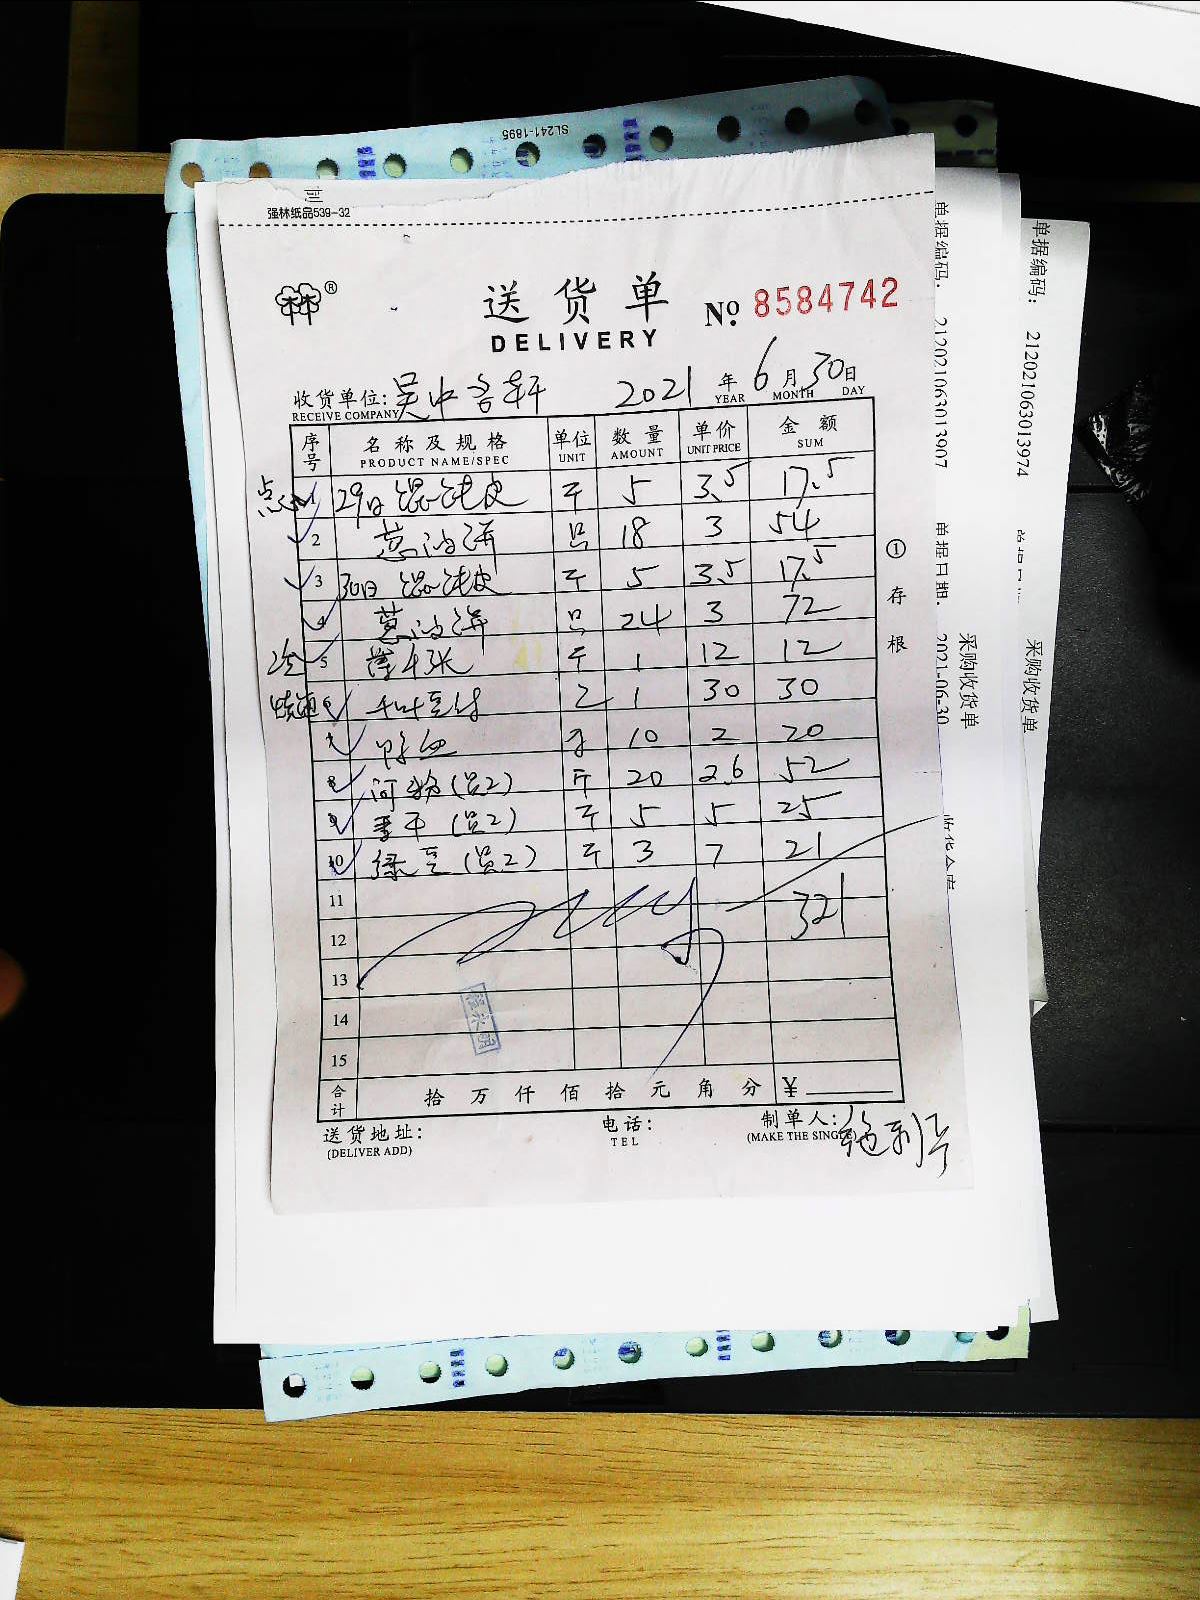 SL241-1895
强林纸品539-32
送货单
DELIVERY
№ 8584742
收货单位: 吴中 2021年6月30日
RECEIVE COMPANY YEAR MONTH DAY
序号 名称及规格 单位 数量 单价 金额
PRODUCT NAME/SPEC UNIT AMOUNT UNIT PRICE SUM
点心 1 29日 混沌皮 斤 5 3.5 17.5
2 葱油饼 只 18 3 54
3 30日 混沌皮 斤 5 3.5 17.5
4 葱油饼 只 24 3 72
5 薄千张 斤 1 12 12
1 30 30
鸭血 10 2 20
8 河粉(员2) 斤 20 2.6 52
9 香干(员2) 斤 5 5 25
10 绿豆(员2) 斤 3 7 21
11
12 321
13
14
15
合计 拾 万 仟 佰 拾 元 角 分 ¥
送货地址: 电话: 制单人:
(DELIVER ADD) TEL (MAKE THE SINGLE)
①存根
单据编码: 212021063013907
单据日期: 2021-06-30
采购收货单
单据编码: 212021063013974
采购收货单